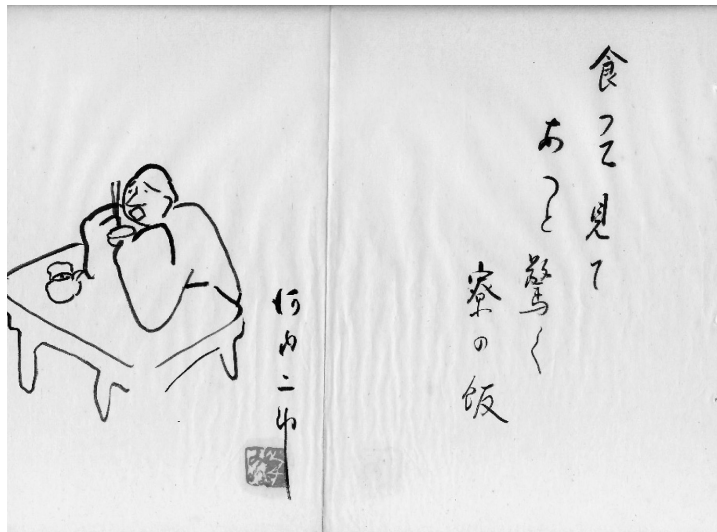 食って見て
あっと驚く
寮の飯
河内二郎